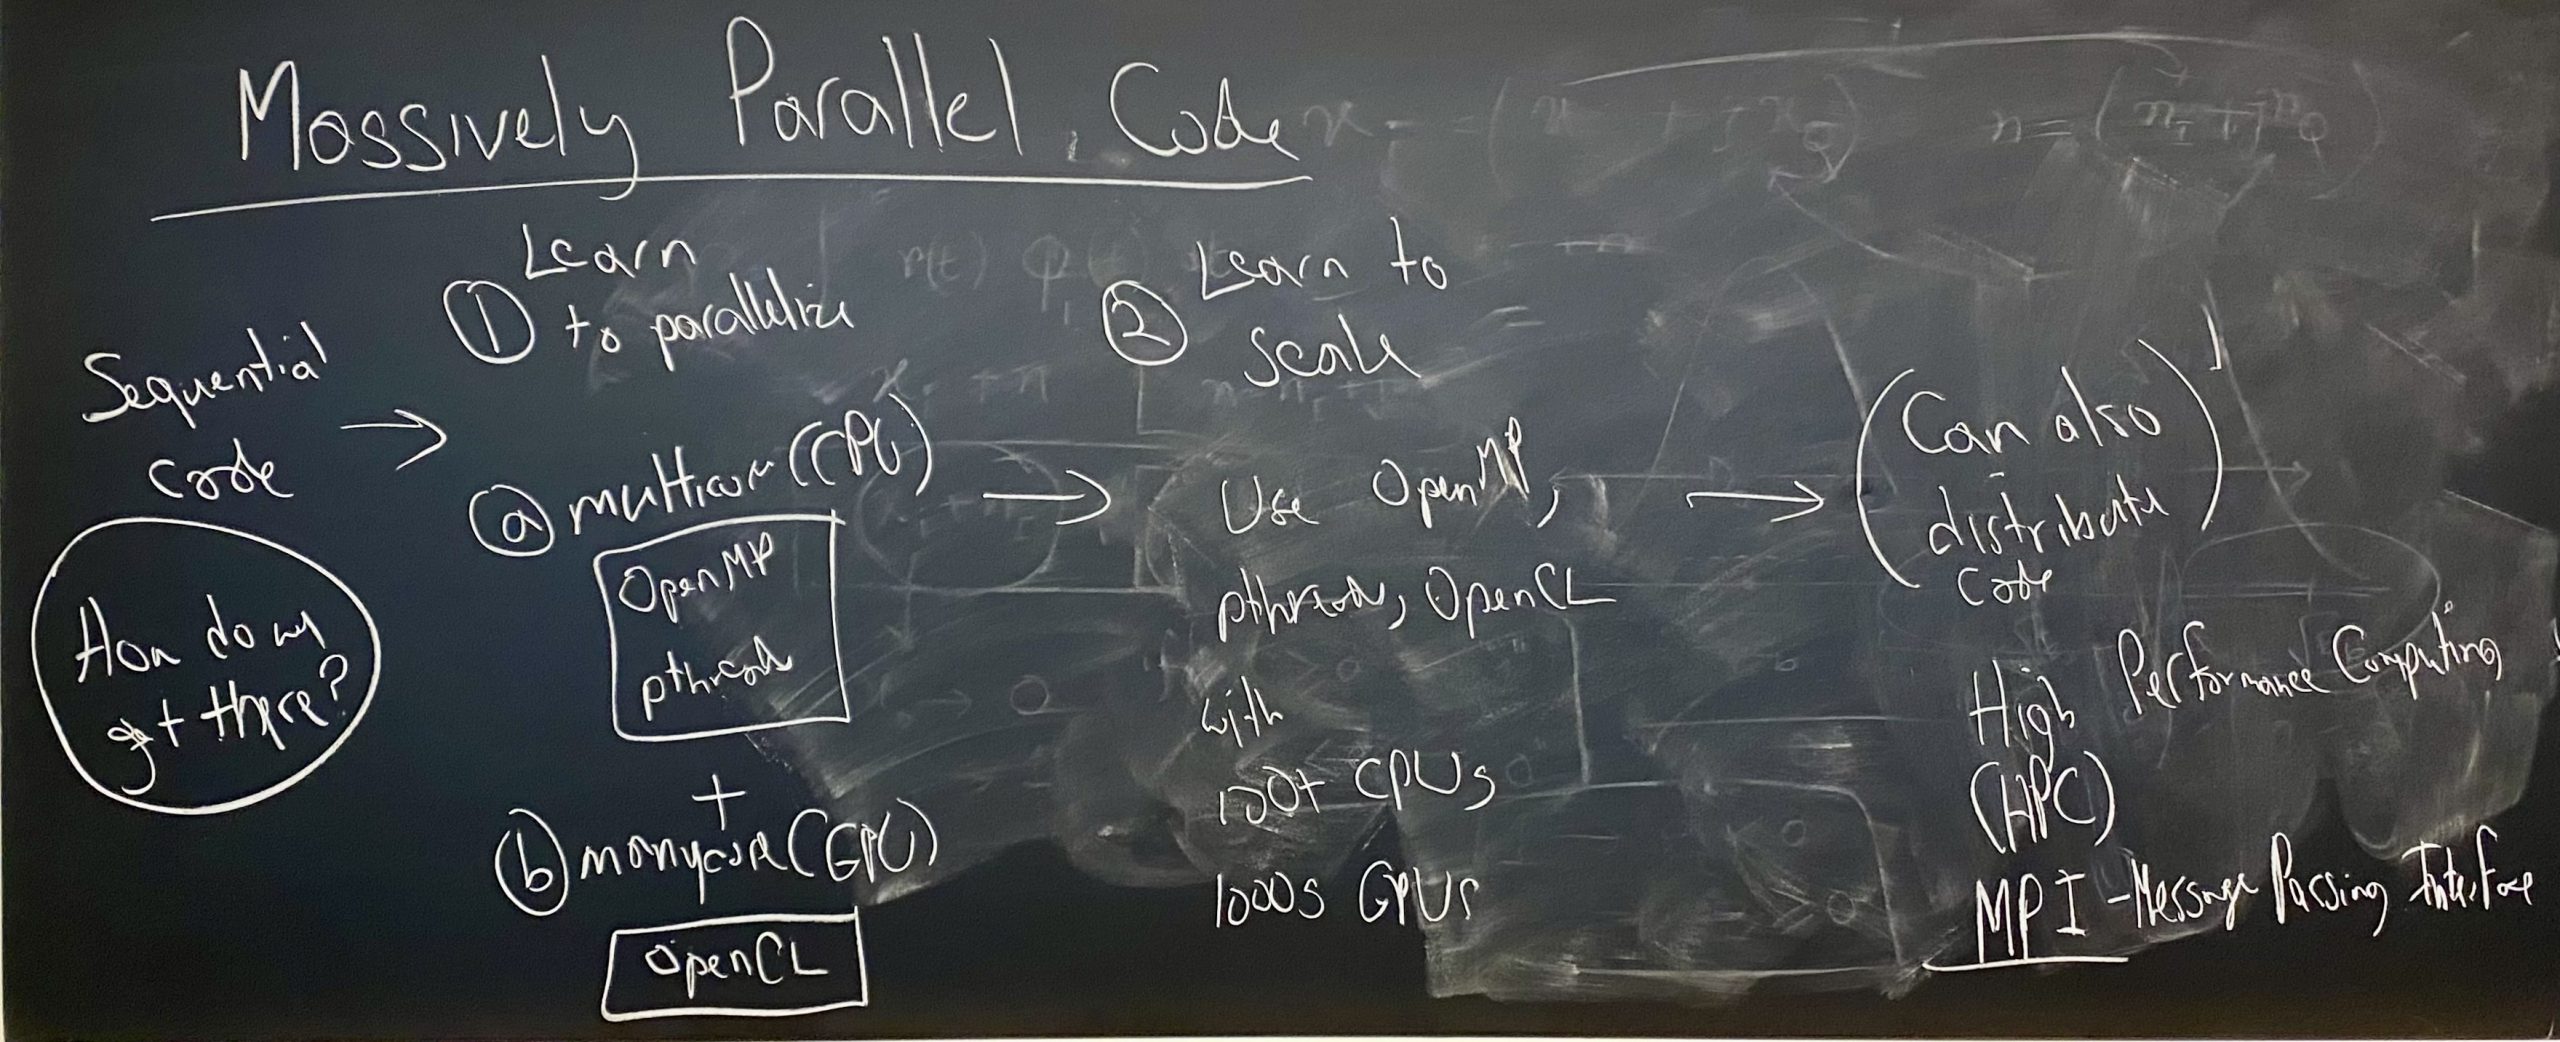 Massively Parallel Code
Sequential
code
How do we
get there?
① Learn
to parallelize
ⓐ multicore (CPU)
OpenMP
pthreads
+
ⓑ manycore (GPU)
OpenCL
② Learn to
scale
Use OpenMP,
pthreads, OpenCL
with
100+ CPUs
1000s GPUs
(Can also
distribute)
code
High Performance Computing
(HPC)
MPI - Message Passing Interface
r(t)